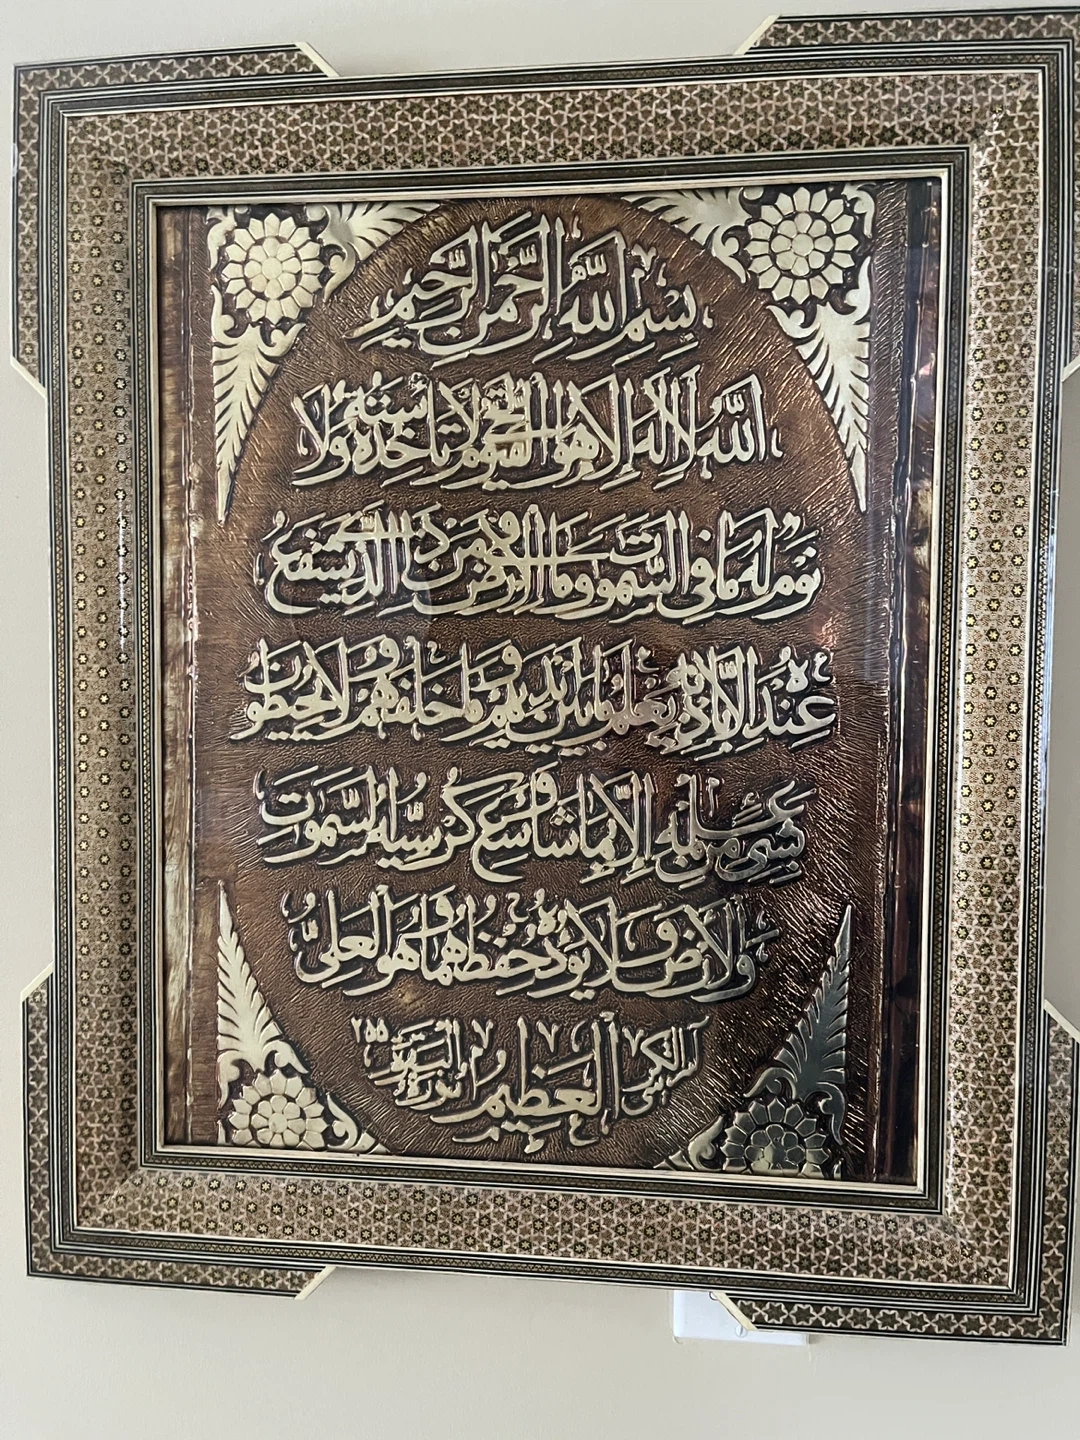 بِسْمِ اللَّهِ الرَّحْمَنِ الرَّحِيمِ
اللَّهُ لَا إِلَهَ إِلَّا هُوَ الْحَيُّ الْقَيُّومُ لَا تَأْخُذُهُ سِنَةٌ وَلَا
نَوْمٌ لَهُ مَا فِي السَّمَوَاتِ وَمَا فِي الْأَرْضِ مَنْ ذَا الَّذِي يَشْفَعُ
عِنْدَهُ إِلَّا بِإِذْنِهِ يَعْلَمُ مَا بَيْنَ أَيْدِيهِمْ وَمَا خَلْفَهُمْ وَلَا يُحِيطُونَ
بِشَيْءٍ مِنْ عِلْمِهِ إِلَّا بِمَا شَاءَ وَسِعَ كُرْسِيُّهُ السَّمَوَاتِ
وَالْأَرْضَ وَلَا يَئُودُهُ حِفْظُهُمَا وَهُوَ الْعَلِيُّ
الْعَظِيمُ
آية الكرسي سورة البقرة ٢٥٥